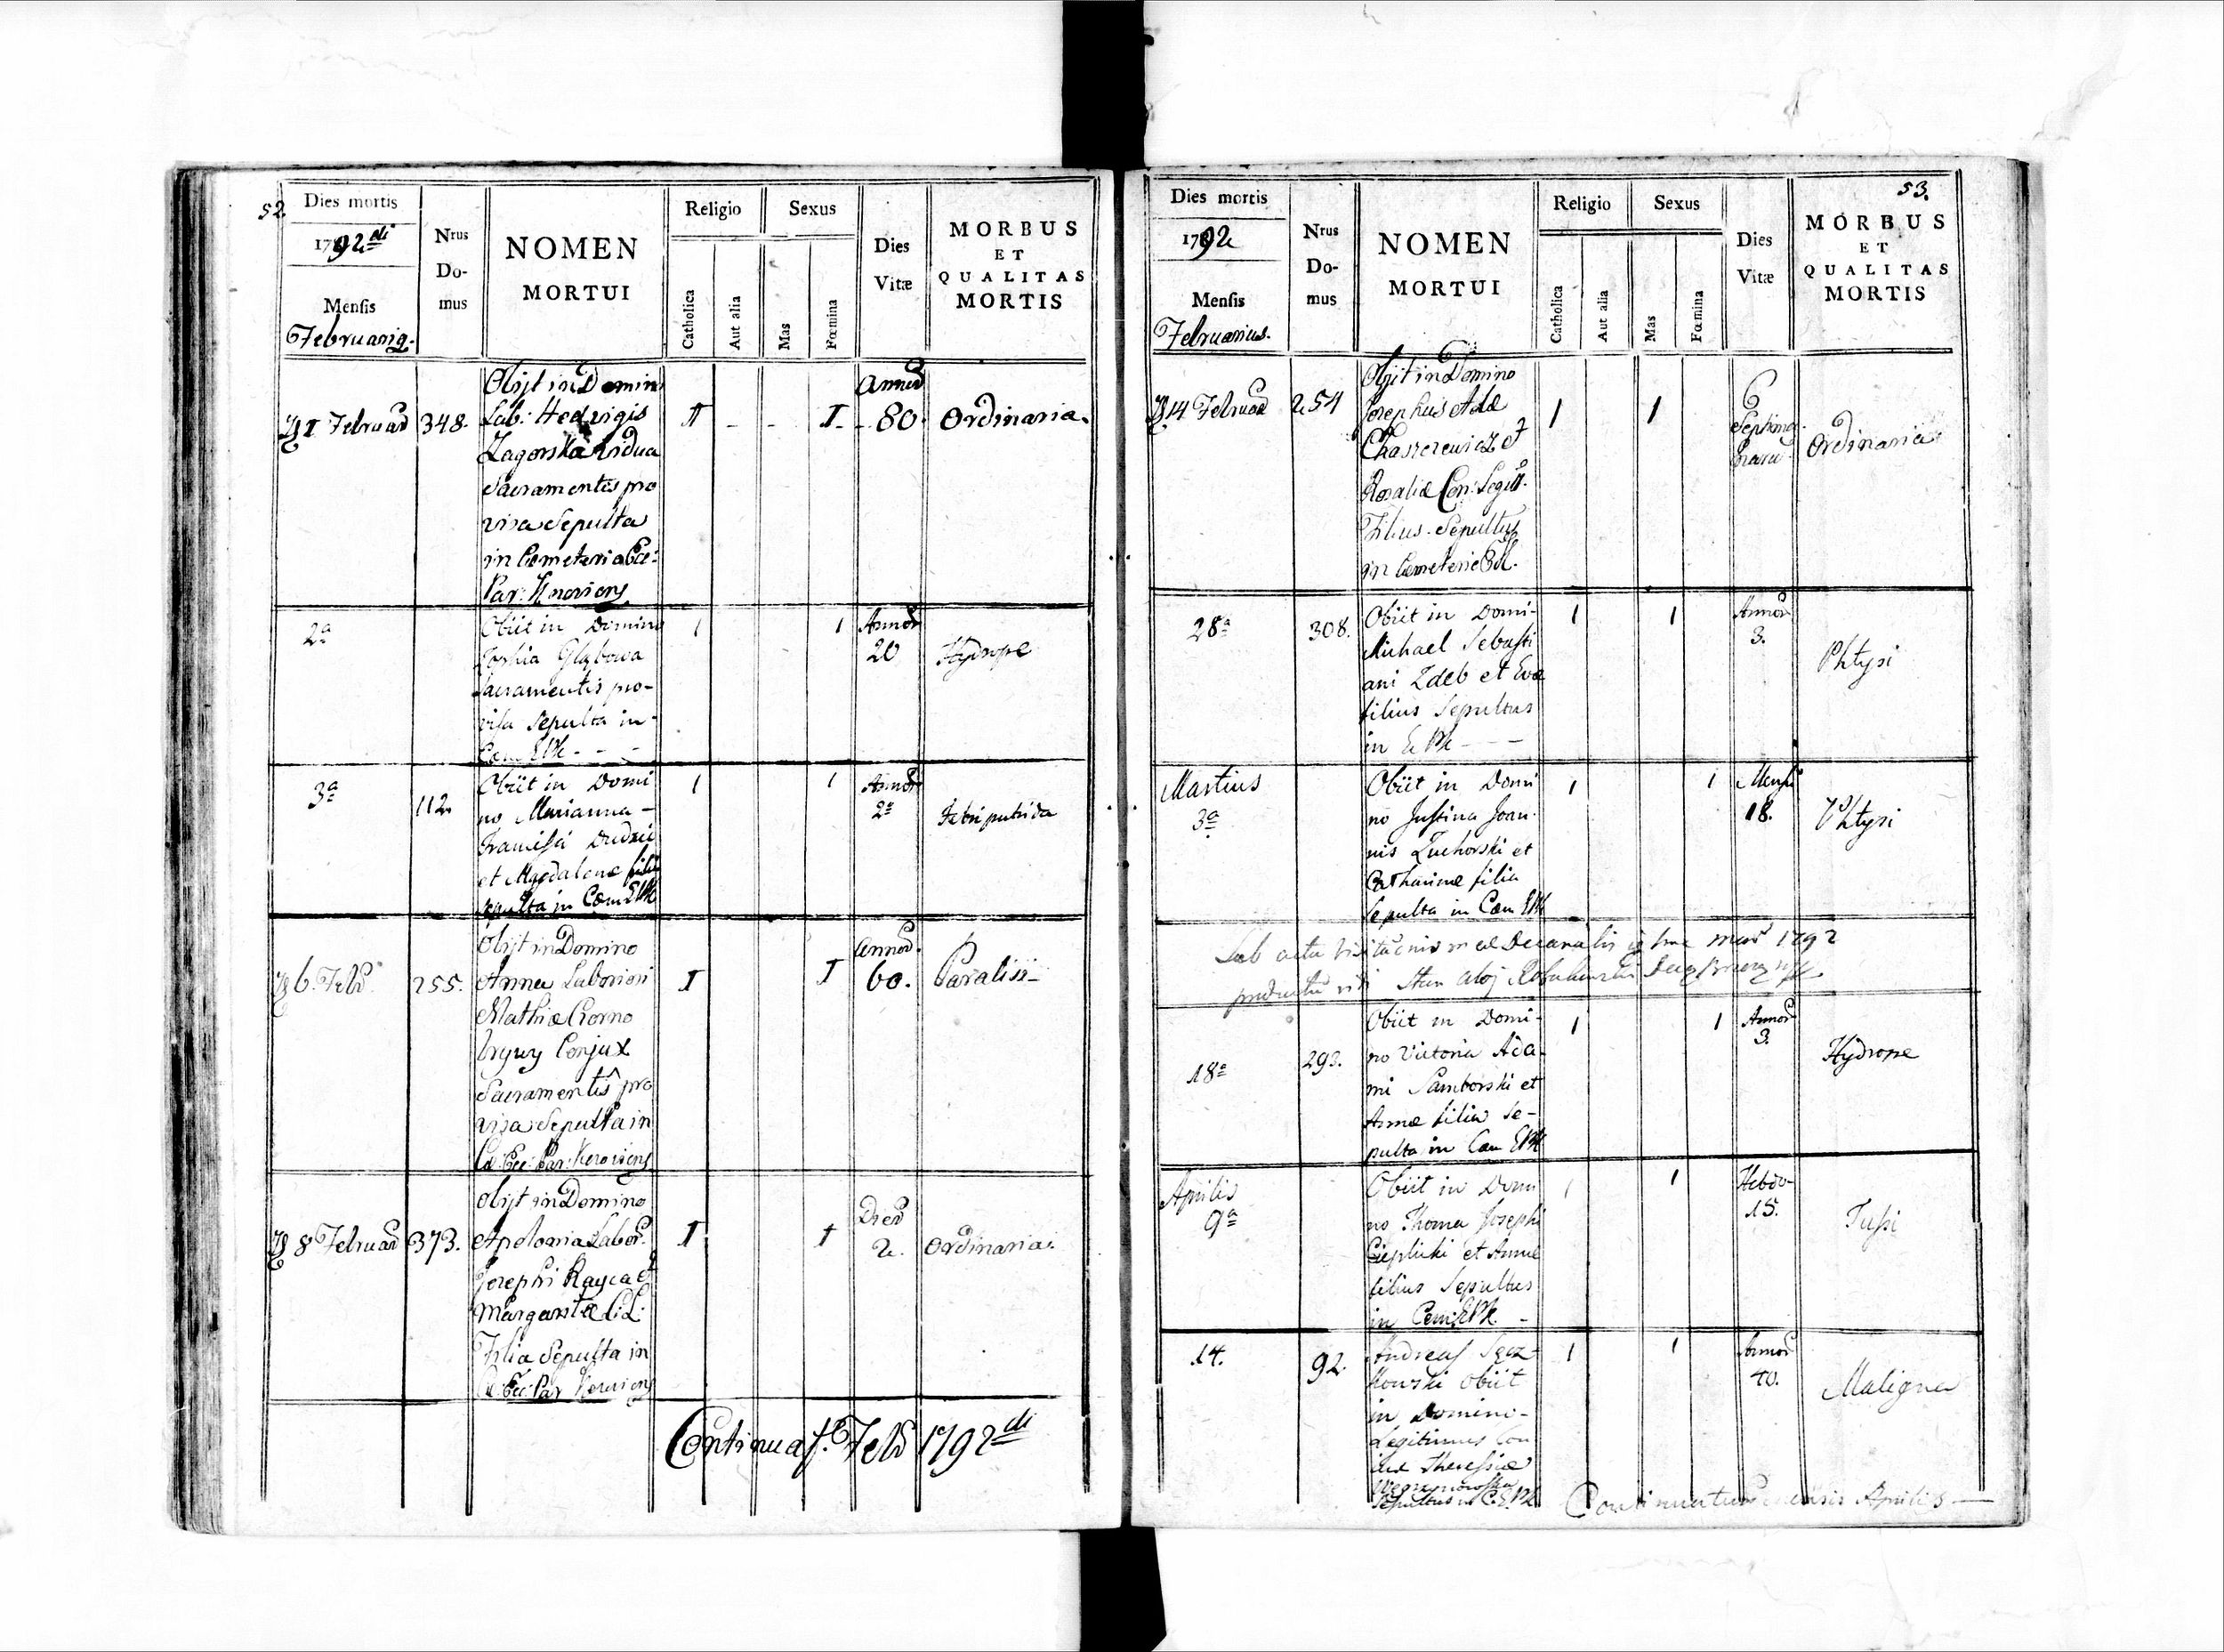 52
Dies mortis
1792di
Mensis
Februariq.
Nrus
Do-
mus
NOMEN
MORTUI
Religio
Catholica
Aut alia
Sexus
Mas
Fœmina
Dies
Vitæ
MORBUS
ET
QUALITAS
MORTIS
1 Februar
348.
Obijt in Domin
Lab: Hedvigis
Zagorska vidua
Sacramentis pro
visa Sepulta
in Cœmeterio Ecc:
Par:
I
I
Annor
80.
Ordinaria.
2a
Obiit in Domino
Zophia Głąbowa
sacramentis pro-
visa sepulta in
Cœm EPK - - -
1
1
Annor
20
Hydrope
3a
112
Obiit in Domi
no Marianna -
Francisci Dudzic
et Magdalenæ filia
sepulta in Cœm EPK
1
1
Annor
2
Febri putrida
6. Feb
255.
Obijt in Domino
Anna Laboriosi
Mathiæ Czorno
Conjux
Sacramentis pro
visa Sepulta in
Cœ: Ecc: Par:
I
I
Annor.
60.
Paralisi-
8 Februar
373.
Obijt in Domino
Apolonia Labor:
Josephi Rayca et
Margaritæ C: L:
Filia Sepulta in
Cœ: Ecc: Par
I
I
Dier
2.
Ordinaria.
Continuat. Feb 1792di
53.
Dies mortis
1792
Mensis
Februarius.
Nrus
Do-
mus
NOMEN
MORTUI
Religio
Catholica
Aut alia
Sexus
Mas
Fœmina
Dies
Vitæ
MORBUS
ET
QUALITAS
MORTIS
14 Februar
254
Obijt in Domino
Josephus Adæ
et
Rosaliæ Con: Legitt.
Filius. Sepultus
in Cœmeterio
1
1
6
Septima-
Ordinaria
28a
308.
Obiit in Domi-
Michael Sebasti
ani Zdeb et Evæ
filius Sepultus
in C. EPK - - -
1
1
Annor
3.
Phtysi
Martius
3a
Obiit in Domi
no Justina Joan-
nis Zuchorski et
Catharinæ filia
Sepulta in Cœm EPK
1
1
Mensi
18.
Phtysi
Sub actu Decanalis 1792
18a
293.
Obiit in Domi-
no Victoria Ada-
mi Samborski et
Annæ filia se-
pulta in Cœm EPK
1
1
Annor
3.
Hydrope
Aprilis
9a
Obiit in Domi
no Thoma Josephi
Cieplicki et Annæ
filius Sepultus
in Cem: EPK. -
1
1
Hebdo-
15.
Tussi
14.
92.
Andreas
kowski obiit
in Domino -
Legitimus Con
iux Theresiæ
Sepultus in C. E. PK
1
1
Annor
40.
Maligna
Continuatur mensis Aprilis —